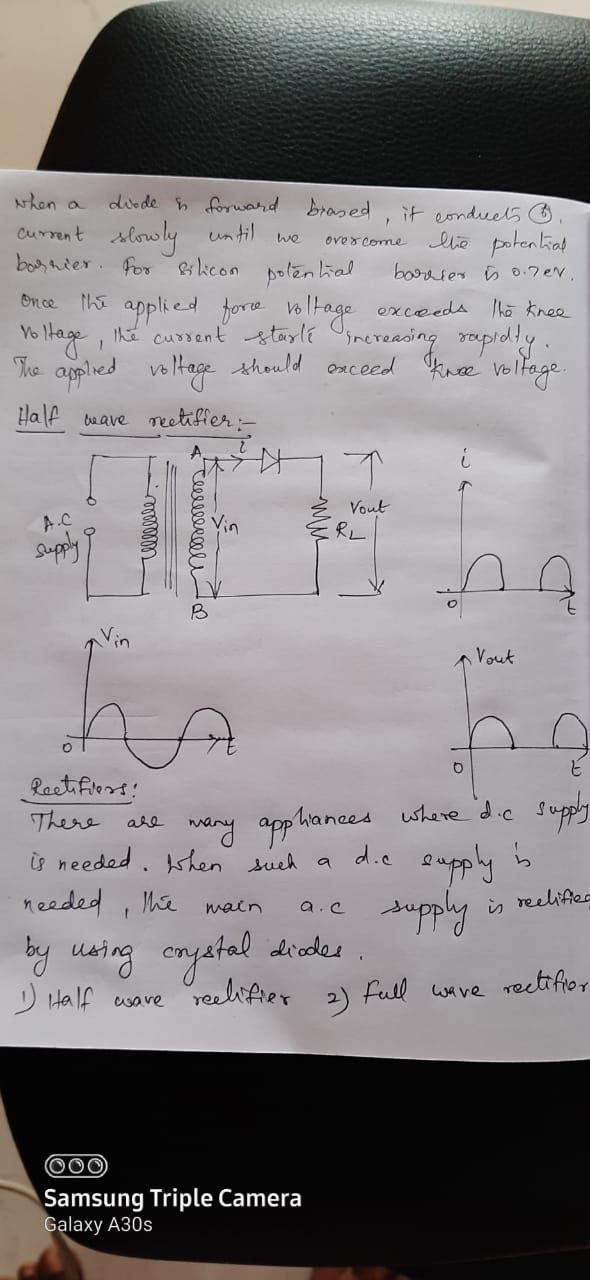 when a diode is forward biased, it conducts 6.
current slowly until we overcome the potential
barrier. For silicon potential barrier is 0.7eV.
Once the applied force voltage exceeds the knee
Voltage, the current starts increasing rapidly.
The applied voltage should exceed knee voltage.
Half wave rectifier:-
A i
A.C
supply
Vin
RL
Vout
B
i
0
t
Vin
0
t
Vout
0
t
Rectifiers:
There are many appliances where d.c supply
is needed. When such a d.c supply is
needed, the main a.c supply is rectified
by using crystal diodes.
1) Half wave rectifier 2) Full wave rectifier
Samsung Triple Camera
Galaxy A30s